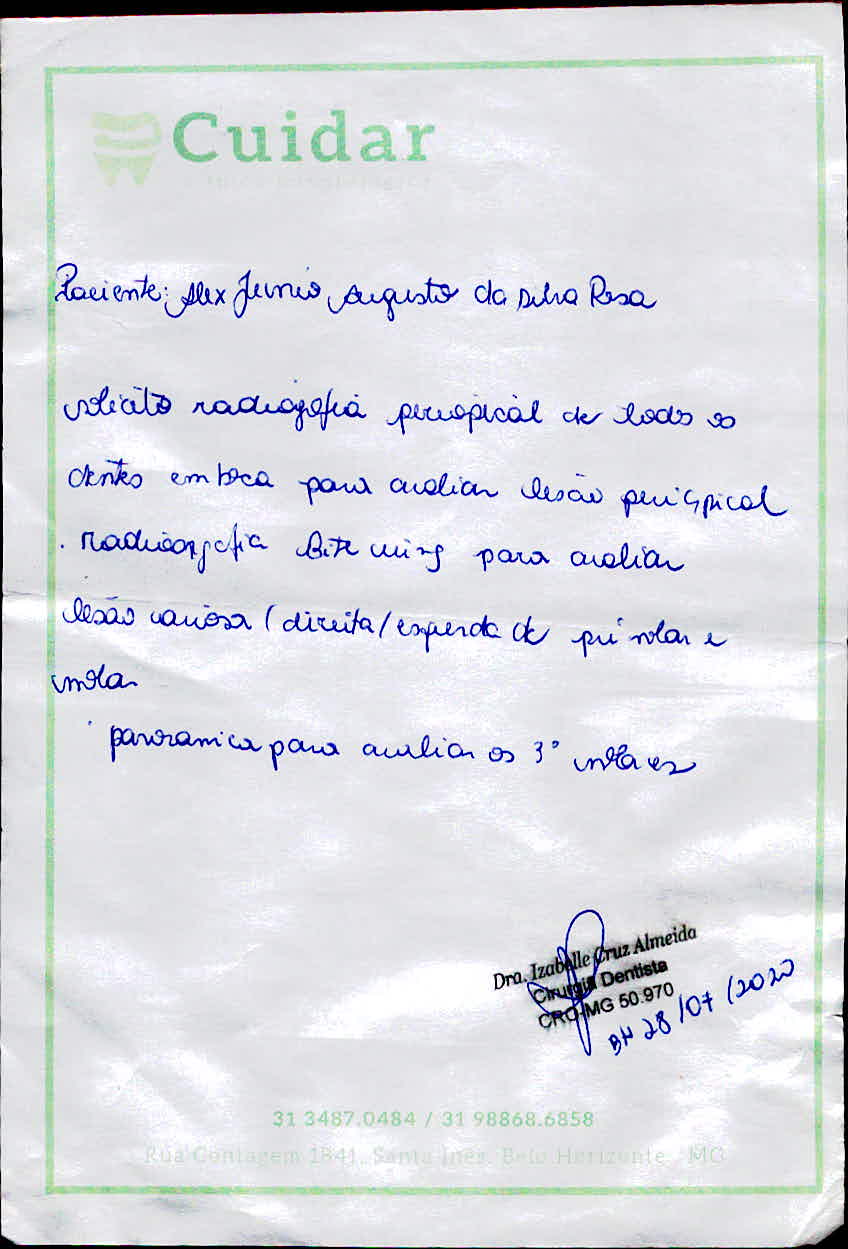 Cuidar
Paciente: Alex Junio Augusto da Silva Rosa
solicito radiografia periapical de todos os
dentes em boca para avaliar lesão periapical
. radiografia Bite wing para avaliar
lesão cariosa (direita/esquerda de pré molar e
molar
panoramica para avaliar os 3° molares
Dra. Izabelle Cruz Almeida
Cirurgiã Dentista
CRO-MG 50.970
BH 28/07/2020
31 3487.0484 / 31 98868.6858
Rua Contagem 1841, Santa Inês, Belo Horizonte - MG